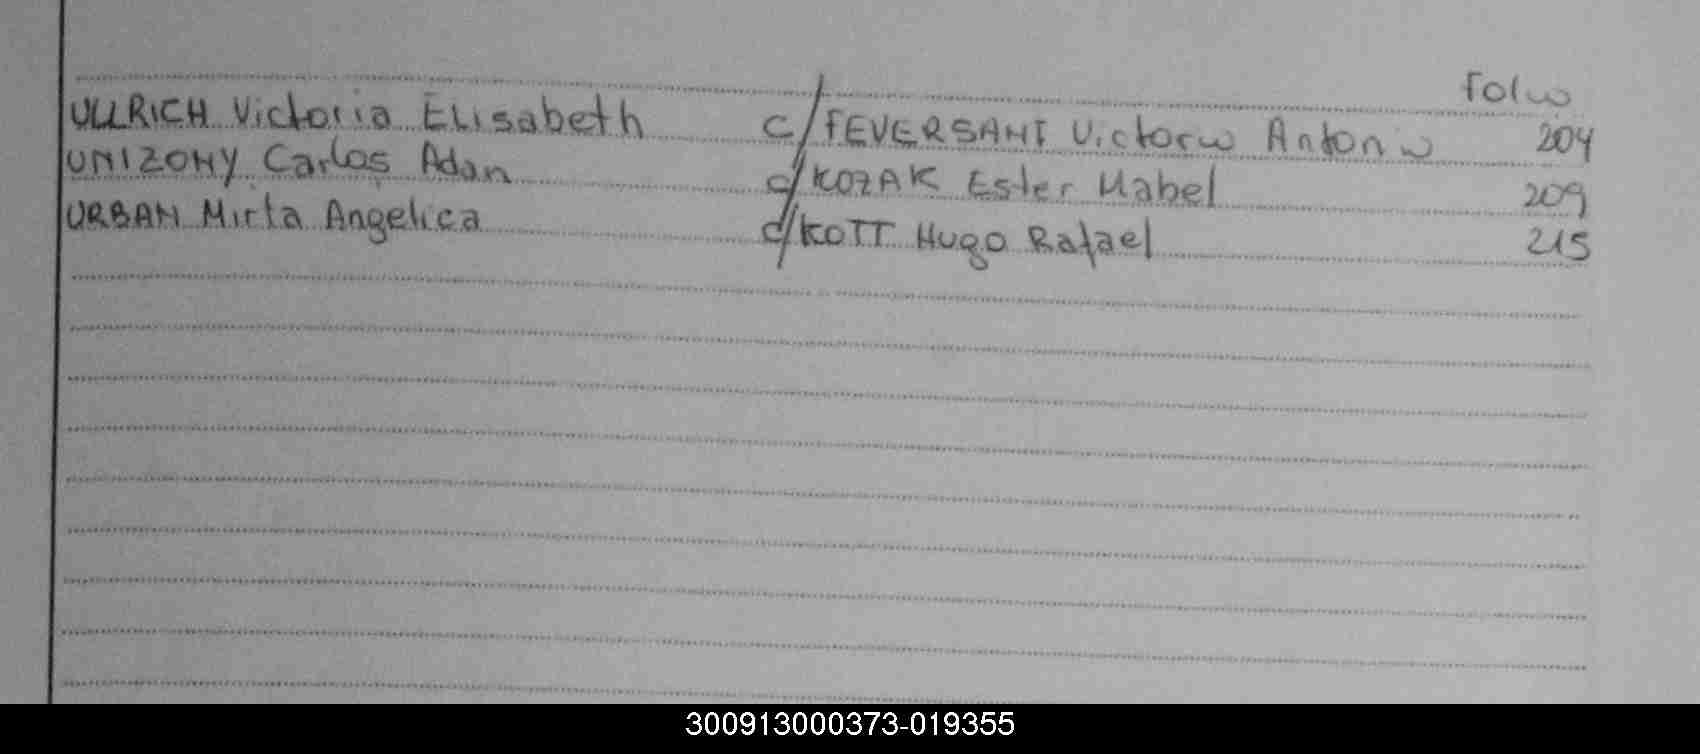 Folio
ULLRICH Victoria Elisabeth c/ FEVERSANI Victorio Antonio 204
UNIZONY Carlos Adan c/ KOZAK Ester Mabel 209
URBAN Mirta Angelica c/ KOTT Hugo Rafael 215
300913000373-019355